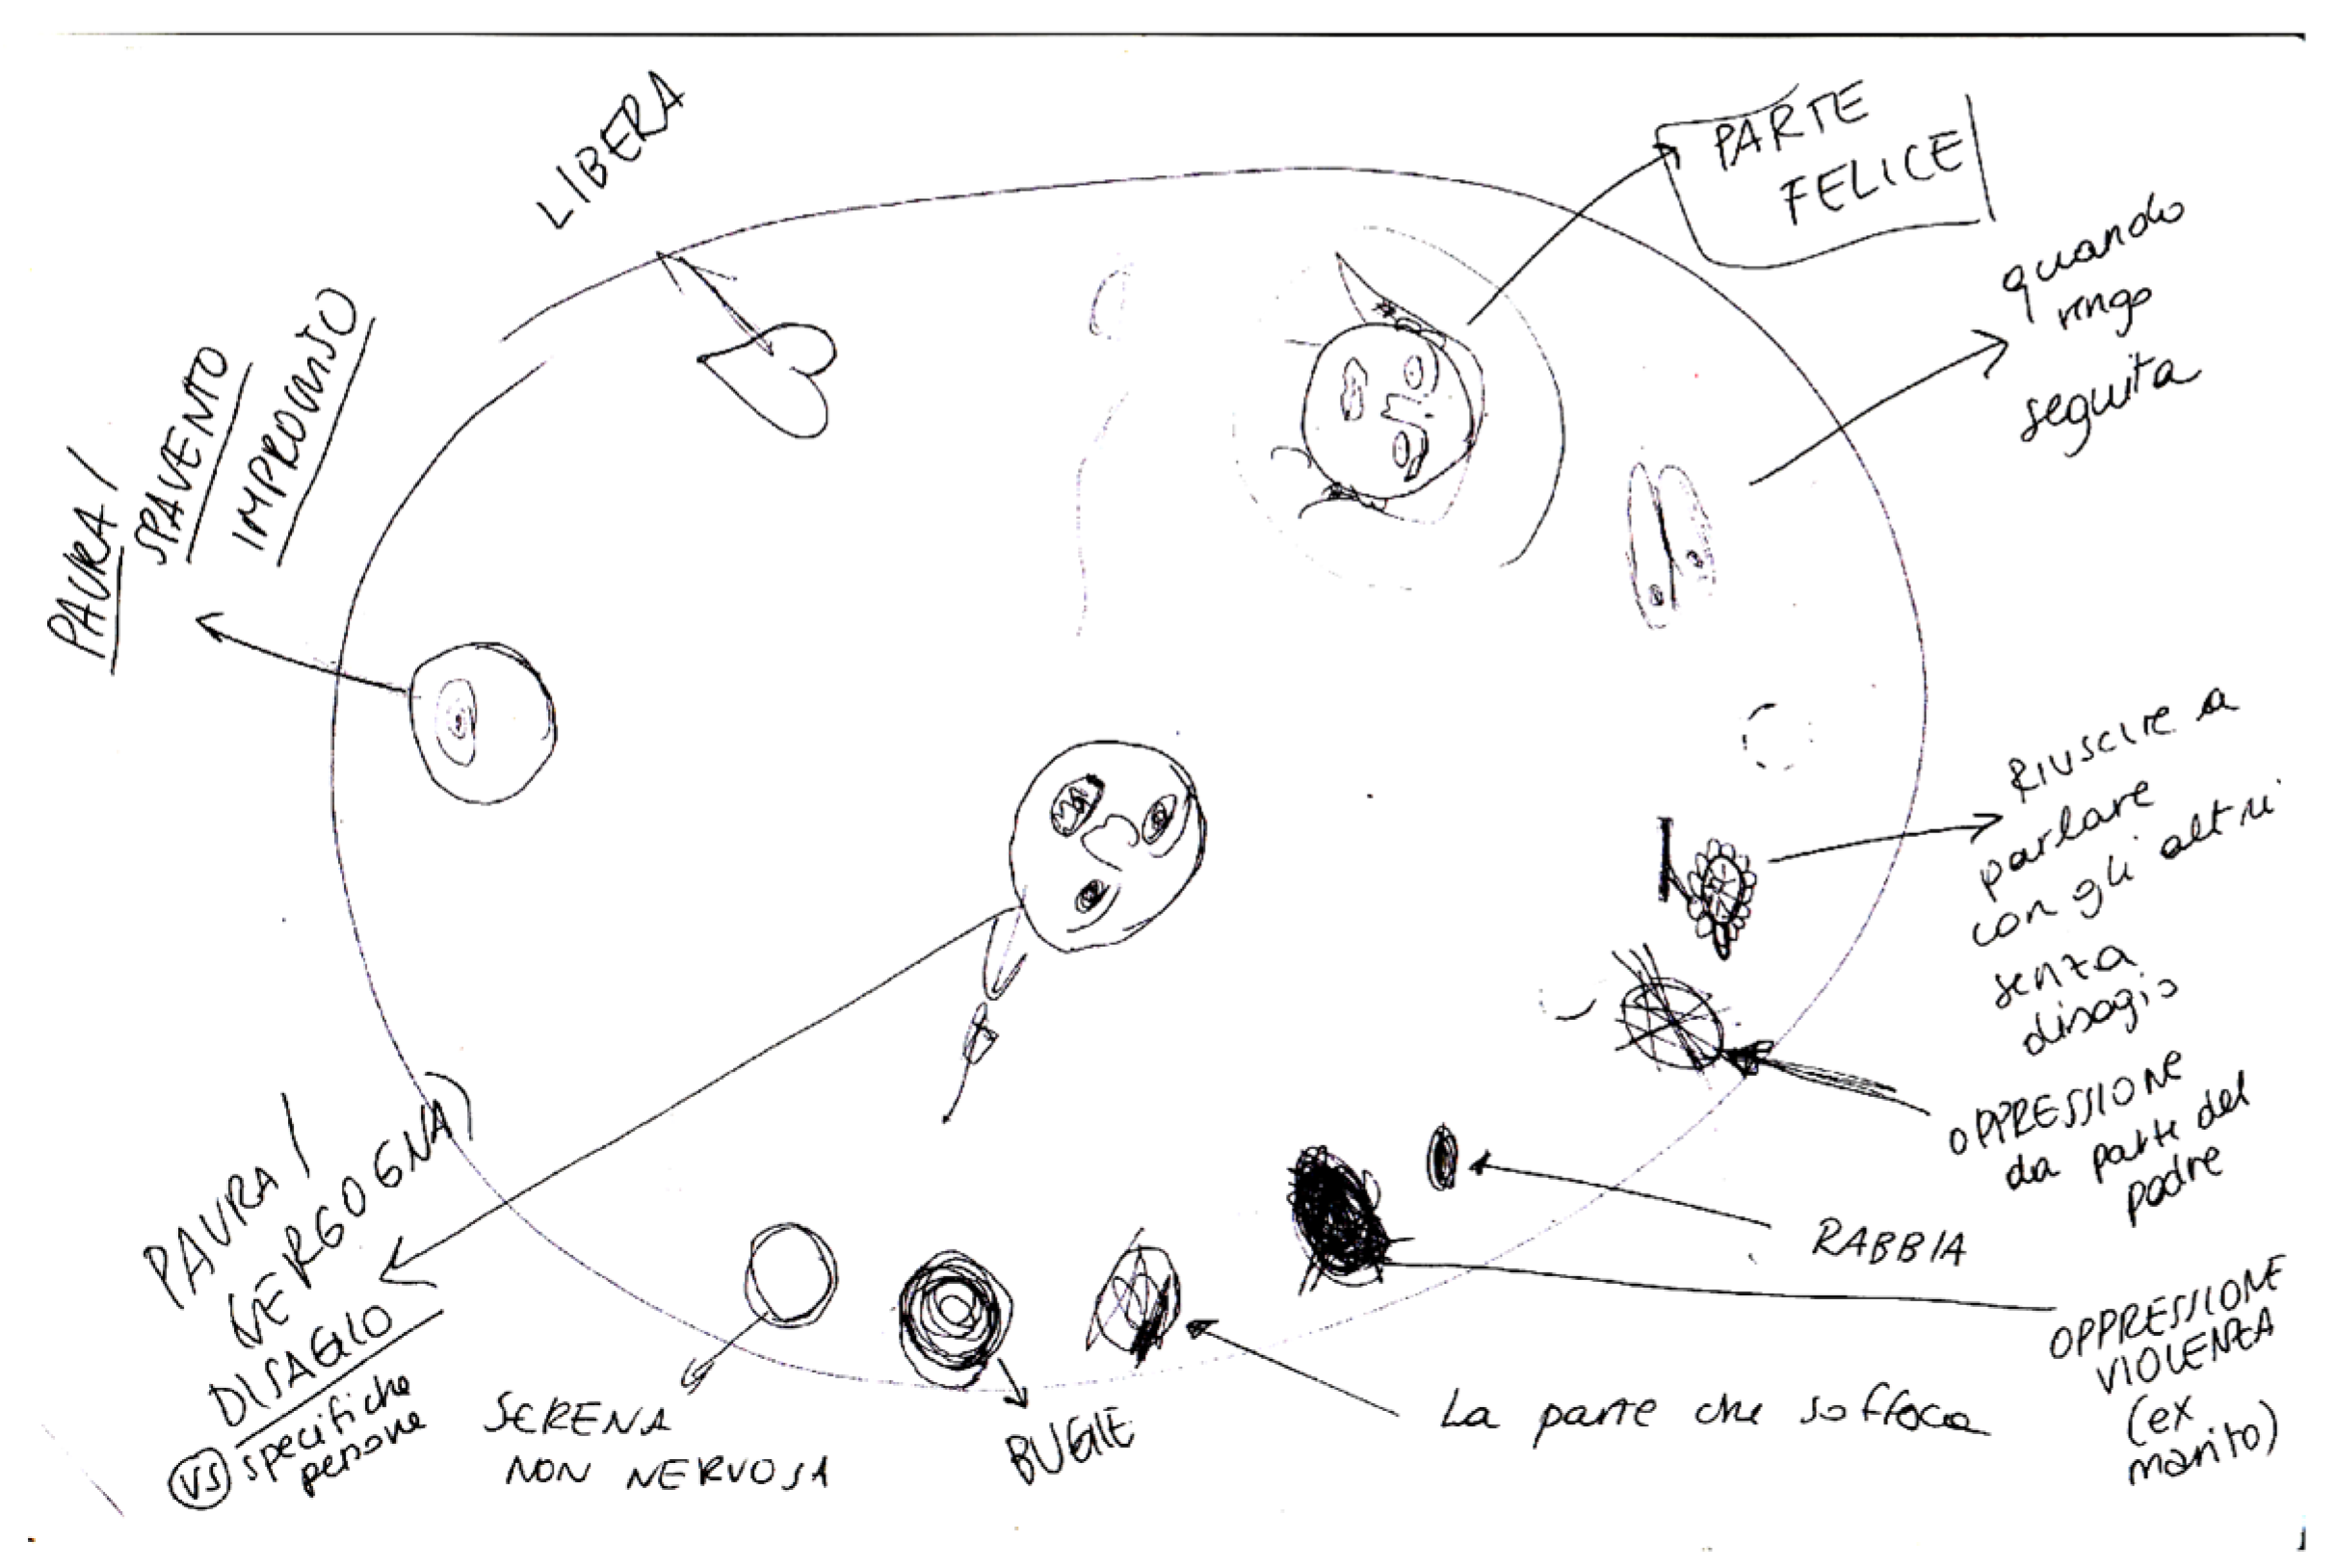 LIBERA
PARTE
FELICE
quando
vengo
seguita
PAURA /
SPAVENTO
IMPROVVISO
RIUSCIRE a
parlare
con gli altri
senza
disagio
OPPRESSIONE
da parte del
padre
RABBIA
OPPRESSIONE
VIOLENZA
(ex
marito)
La parte che soffoca
BUGIE
SERENA
NON NERVOSA
PAURA /
VERGOGNA
DISAGIO
VS specifiche
persone